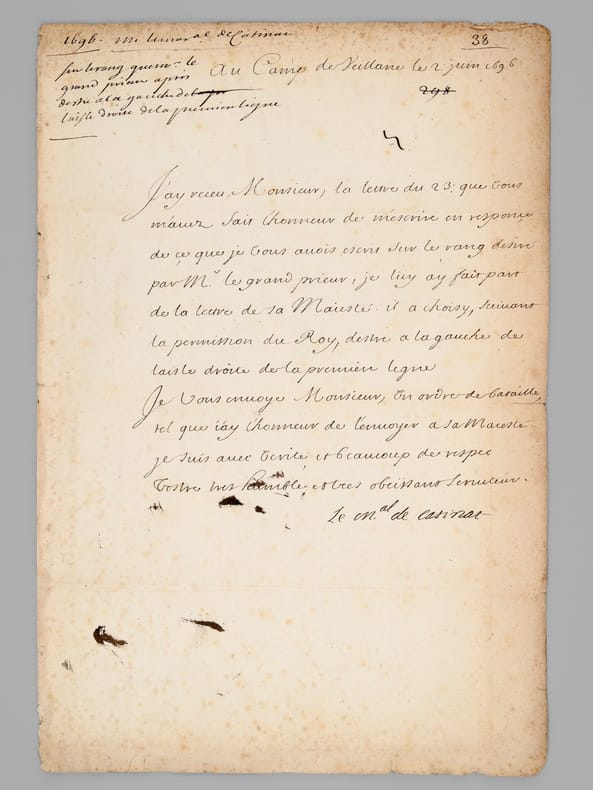 1696. M. le mar.al de Catinat
38
sur le rang que m.r le
grand prieur apres
destre a la gauche de la
laisle droite de la premiere ligne
Au Camp de Veillane le 2. juin 1696
298
J'ay receu, Monsieur, la lettre du 23. que vous
m'auez fait l'honneur de m'escrire en response
de ce que je vous auois escrit sur le rang desiré
par M.r le grand prieur, je luy ay fait part
de la lettre de sa Maiesté. il a choisy, suiuant
la permission du Roy, destre a la gauche de
laisle droite de la premiere ligne
Je vous enuoye Monsieur, un ordre de bataille,
tel que i'ay l'honneur de l'enuoyer a sa Maiesté.
je suis auec verité et beaucoup de respec
vostre tres humble et tres obeissant seruiteur.
Le M.al de Catinat